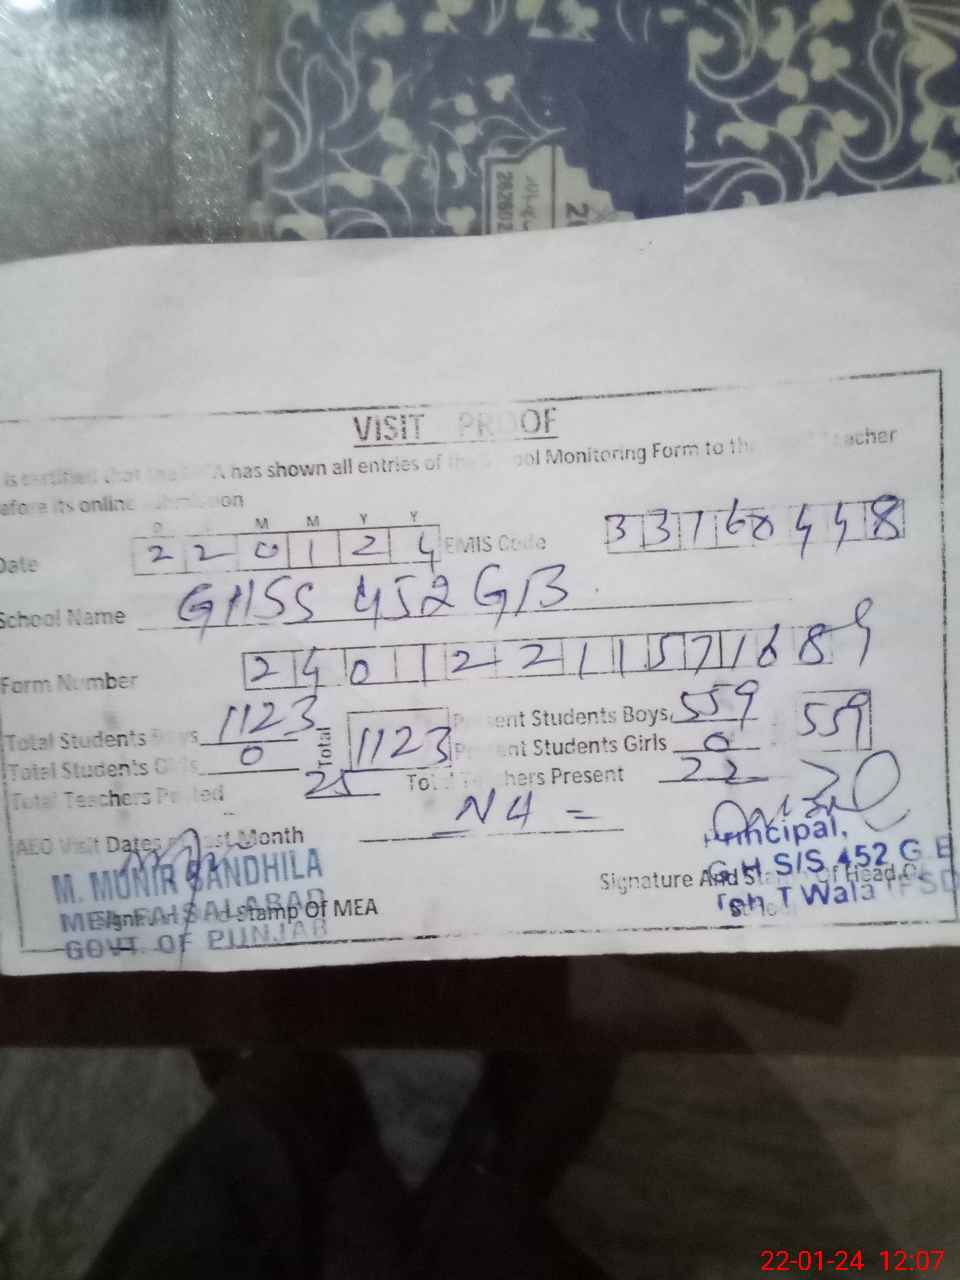 VISIT PROOF
is certified that the A has shown all entries of the School Monitoring Form to the Teacher
before its online submission
D M M Y Y
Date 2 2 0 1 2 4 EMIS Code 3 3 1 6 0 4 4 8
School Name GHSS 452 GB
Form Number 2 4 0 1 2 2 1 1 5 7 1 6 8 9
Total Students Boys 1123 Total 1123 Present Students Boys 559 559
Total Students Girls 0 Present Students Girls 0
Total Teachers Posted 25 Total Teachers Present 22
AEO Visit Dates Last Month
M. MUNIR SANDHILA
MEA FAISALABAD
GOVT. OF PUNJAB
Signature And Stamp Of MEA
Principal,
G.H.S/S 452 G.B
Teh. T Wala (FSD
Signature And Stamp Of Head Of
School
22-01-24 12:07